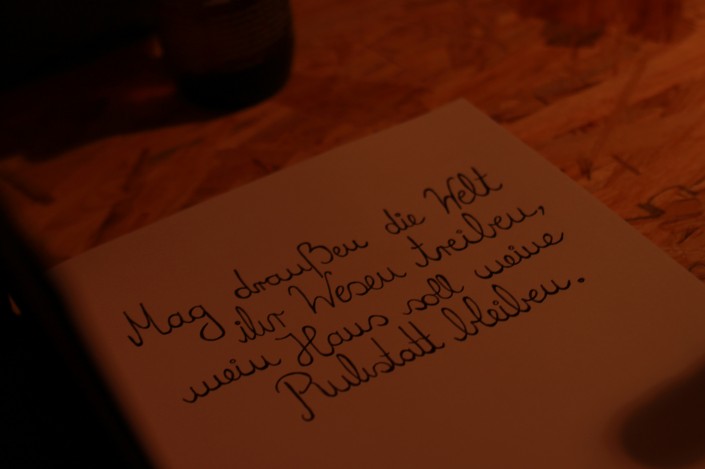 Mag draußen die Welt
ihr Wesen treiben,
mein Haus soll meine
Ruhstatt bleiben.